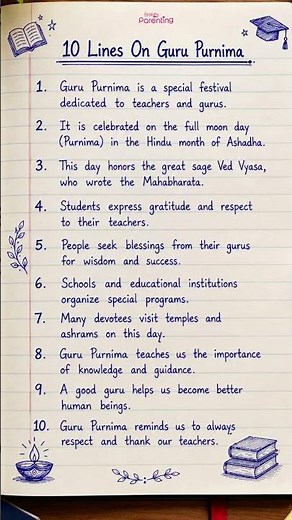 FirstCry
Parenting
10 Lines On Guru Purnima
1. Guru Purnima is a special festival
dedicated to teachers and gurus.
2. It is celebrated on the full moon day
(Purnima) in the Hindu month of Ashadha.
3. This day honors the great sage Ved Vyasa,
who wrote the Mahabharata.
4. Students express gratitude and respect
to their teachers.
5. People seek blessings from their gurus
for wisdom and success.
6. Schools and educational institutions
organize special programs.
7. Many devotees visit temples and
ashrams on this day.
8. Guru Purnima teaches us the importance
of knowledge and guidance.
9. A good guru helps us become better
human beings.
10. Guru Purnima reminds us to always
respect and thank our teachers.